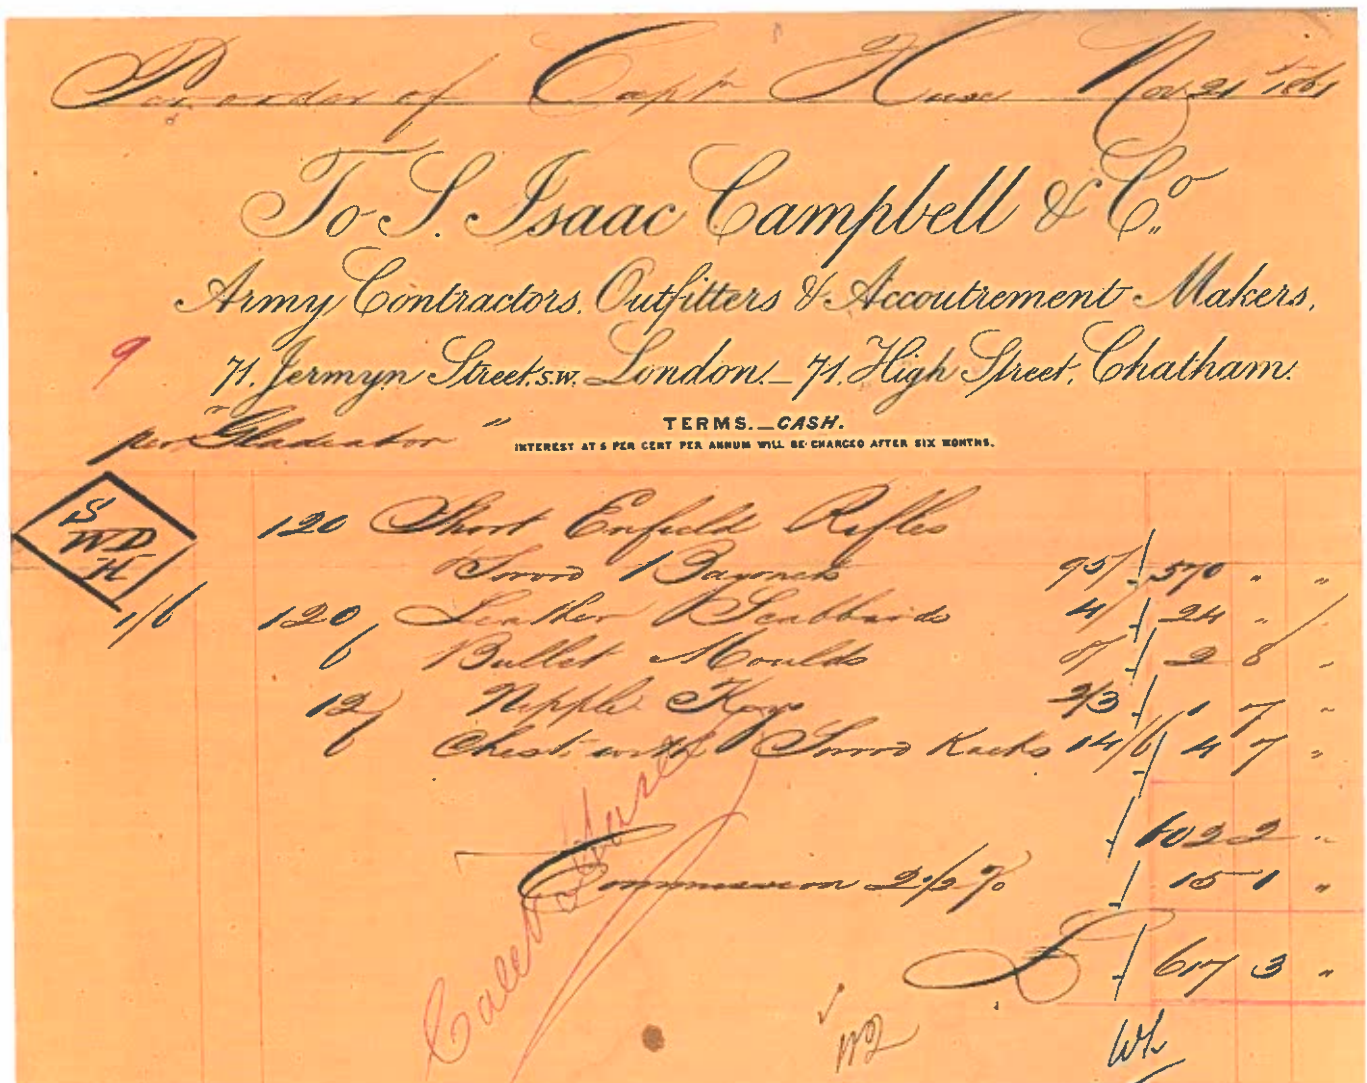 Per order of Capt Huse Nov 21st 1861
To S. Isaac Campbell & Co.
Army Contractors, Outfitters & Accoutrement Makers,
9
71, Jermyn Street, S.W. London. _ 71, High Street, Chatham.
per "Gladiator"
TERMS._CASH.
INTEREST AT 5 PER CENT PER ANNUM WILL BE CHARGED AFTER SIX MONTHS.
S
WD
H
1/6
120 Short Enfield Rifles
Sword Bayonets 95/ 570 " "
120 Leather Scabbards 4/ 24 " "
6 Bullet Moulds 8/ 2 8 "
12 Nipple Keys 2/3 1 7 "
6 Chests with Sword Racks 14/6 4 7 "
602 2 "
Commission 2 1/2 % 15 1 "
£ 617 3 "